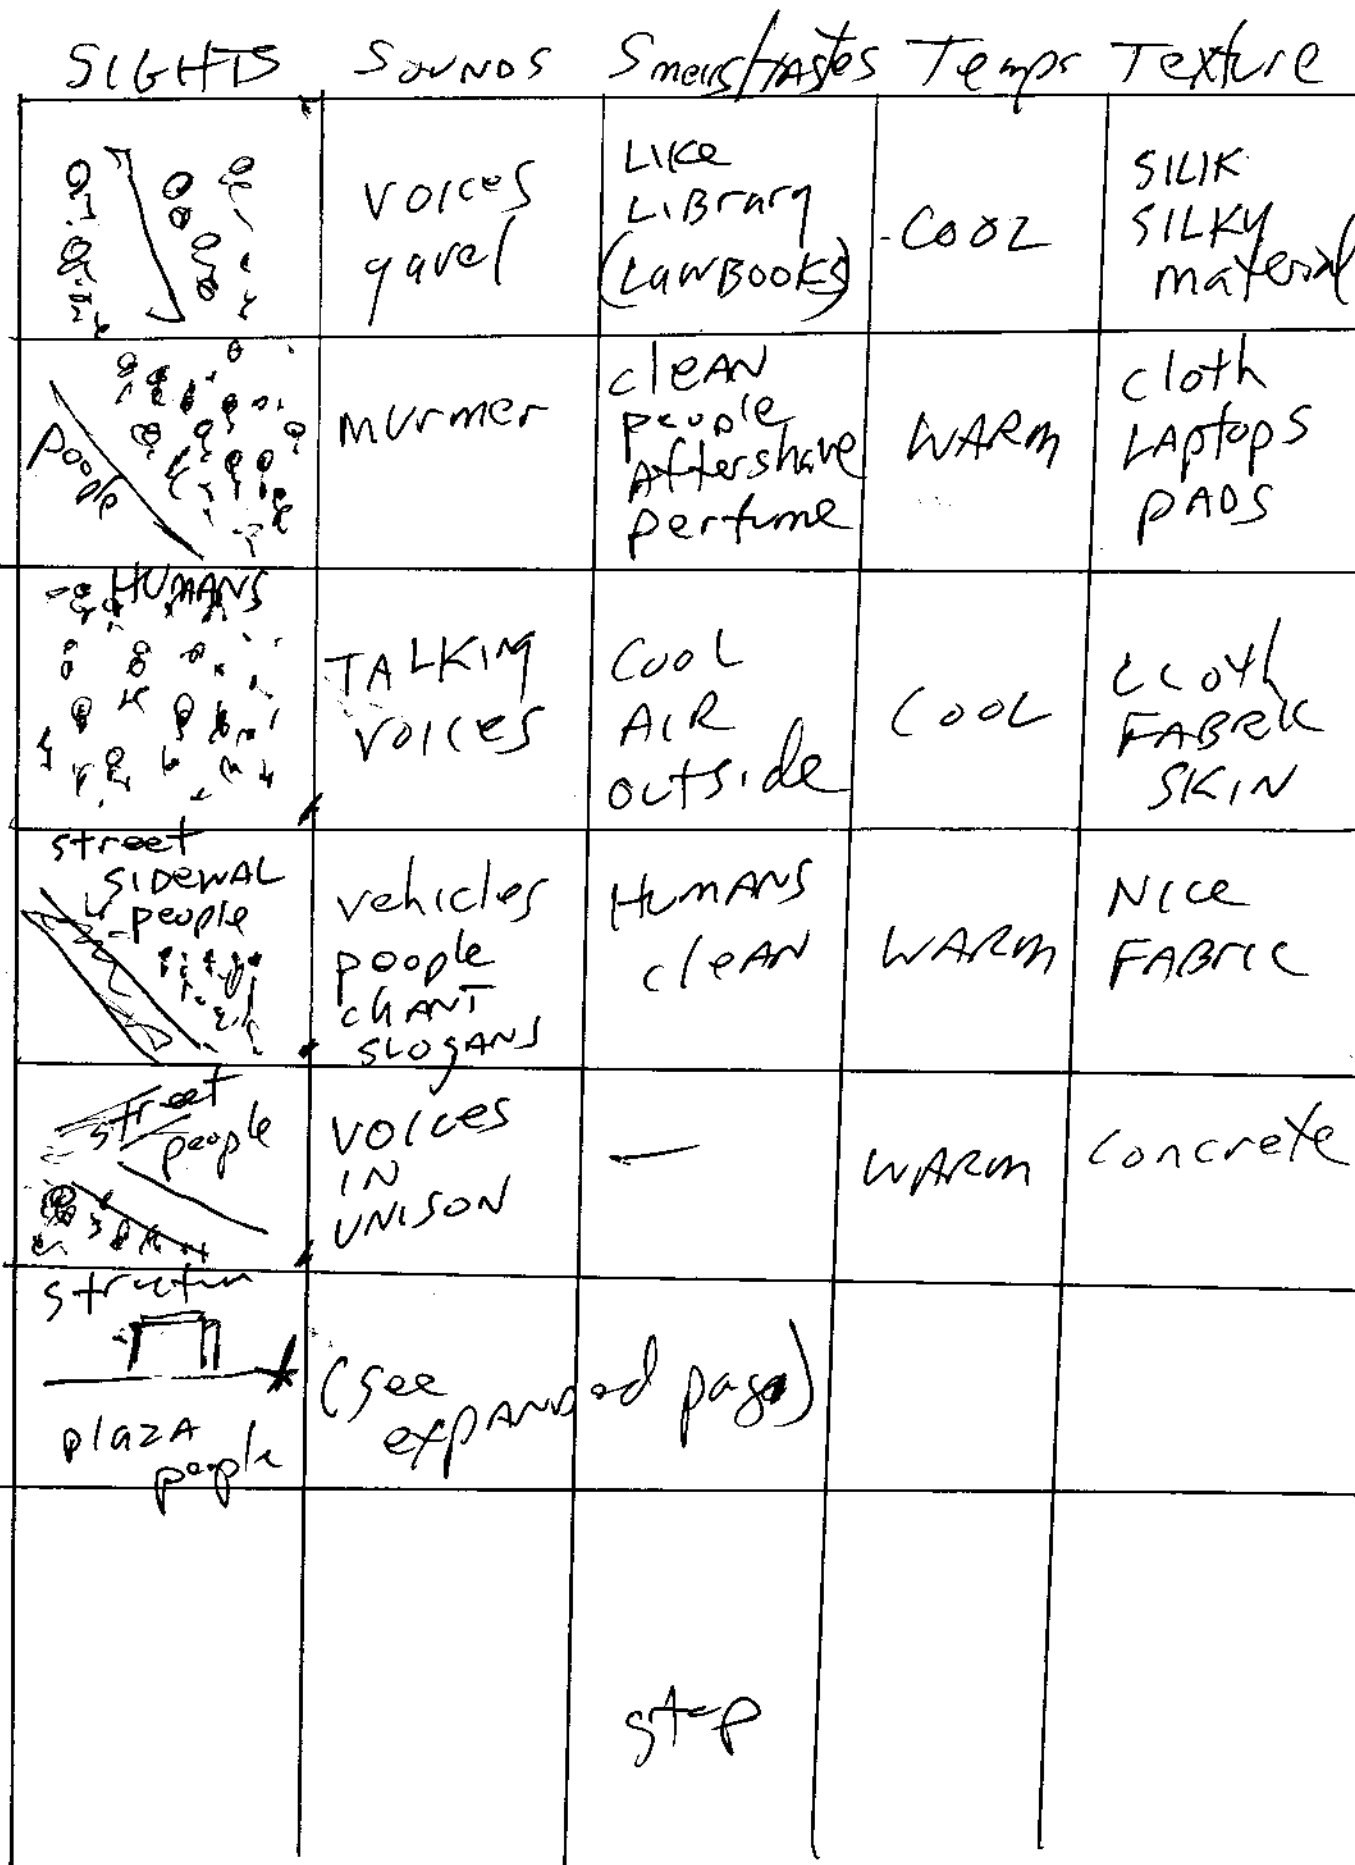 SIGHTS SOUNDS Smells/tastes Temps Texture
voices
gavel
LIKE
LIBrary
(LAWBOOKS)
COOL
SILIK
SILKY
material
people
murmer
cleAN
people
Aftershave
perfume
WARM
cloth
LAptops
pADS
HUMANS
TALKING
VOICES
COOL
AIR
outside
COOL
CLOTH
FABRIC
SKIN
street
SIDEWAL
people
vehicles
people
CHANT
SLOGANS
HUMANS
cleAN
WARM
NICE
FABRIC
street
people
VOICES
IN
UNISON
—
WARM
concrete
plazA
people
(see
expANDed page)